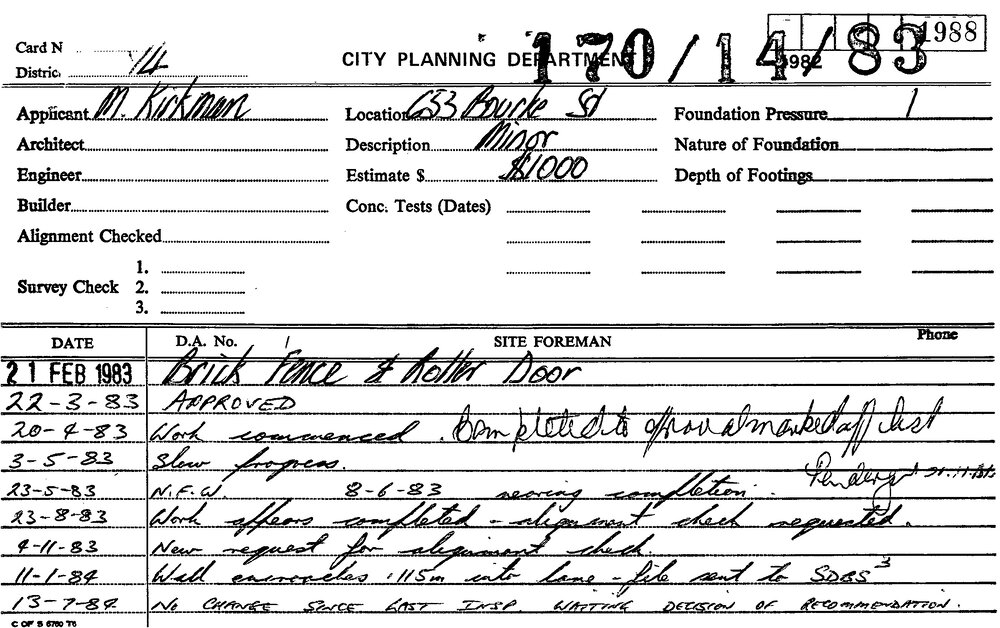 1988
Card N
170/14/83
1982
CITY PLANNING DEPARTMENT
Distric. 14
Applicant M. Kirkman Location 653 Bourke St Foundation Pressure 1
Architect Description Minor Nature of Foundation
Engineer Estimate $ $1000 Depth of Footings
Builder Conc. Tests (Dates)
Alignment Checked
1.
Survey Check 2.
3.
DATE D.A. No. SITE FOREMAN Phone
21 FEB 1983 Brick Fence & Roller Door
22-3-83 APPROVED
20-4-83 Work commenced. Completed to approval marked off list
3-5-83 Slow progress.
23-5-83 N.F.W. 8-6-83 nearing completion.
23-8-83 Work appears completed - alignment check requested.
4-11-83 New request for alignment check.
11-1-84 Wall encroaches .115m into lane - file sent to SDBS 3
13-7-84 NO CHANGE SINCE LAST INSP. WAITING DECISION OF RECOMMENDATION.
C OF S 6760 T6